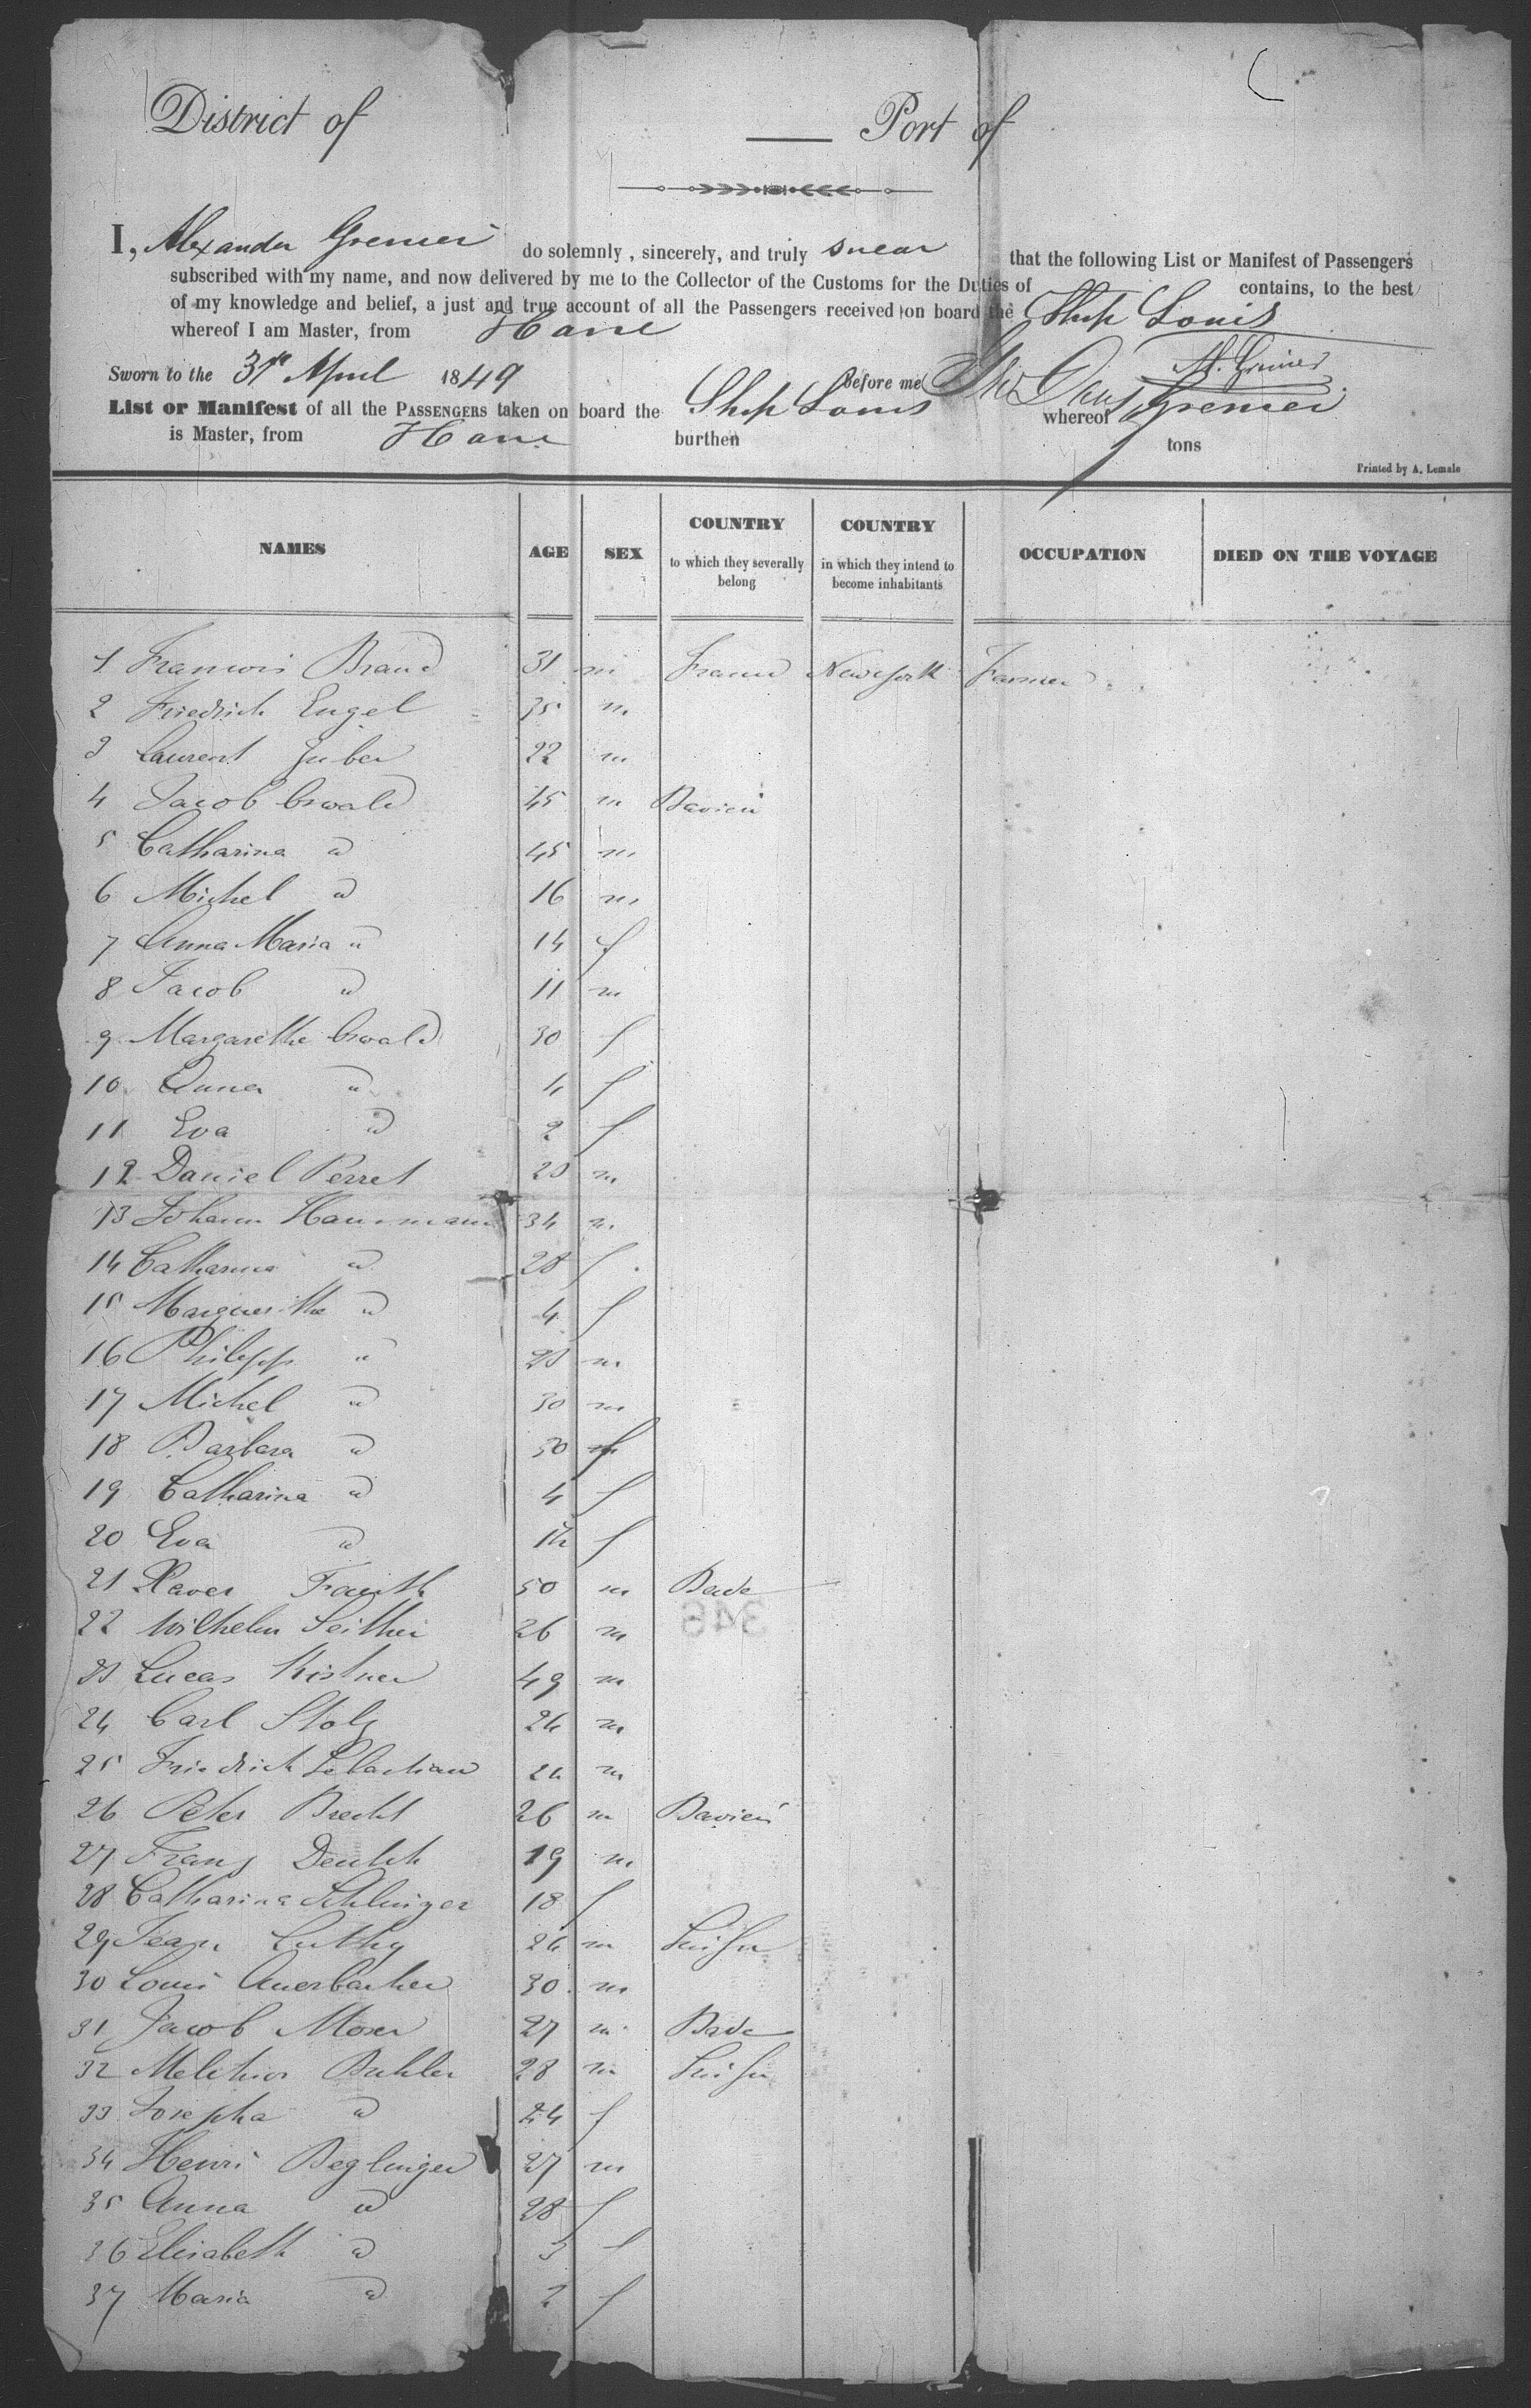 District of Port of
I, Alexander Gremier do solemnly, sincerely, and truly swear that the following List or Manifest of Passengers
subscribed with my name, and now delivered by me to the Collector of the Customs for the Duties of contains, to the best
of my knowledge and belief, a just and true account of all the Passengers received on board the Ship Louis
whereof I am Master, from Havre
Sworn to the April 1849 before me
List or Manifest of all the PASSENGERS taken on board the Ship Louis whereof Gremier
is Master, from Havre burthen tons
Printed by A. Lemale
NAMES AGE SEX COUNTRY to which they severally belong COUNTRY in which they intend to become inhabitants OCCUPATION DIED ON THE VOYAGE
1 Francois Braud 31 m France New York Farmer
2 Friedrich Engel 35 m
3 Laurent Huber 22 m
4 Jacob Oswald 45 m Baviere
5 Catharina " 45 m
6 Michel " 16 m
7 Anna Maria " 14 f
8 Jacob " 11 m
9 Margarethe Oswald 30 f
10 Anna " 4 f
11 Eva " 2 f
12 Daniel Perret 20 m
13 Johann Hausmann 34 m
14 Catharina " 28 f
15 Marguerithe " 4 f
16 Philipp " m
17 Michel " 30 m
18 Barbara " 30 f
19 Catharina " 4 f
20 Eva " f
21 Xaver Fauth 50 m Bade
346
22 Wilhelm Seither 26 m
23 Lucas Kistner 49 m
24 Carl Stolz 24 m
25 Friedrich Sebastian 24 m
26 Peter Brecht 26 m Baviere
27 Franz Deutsch 19 m
28 Catharina Schlinger 18 f
29 Jean Luthy 24 m Suisse
30 Louis Auerbacher 30 m
31 Jacob Moser 27 m Bade
32 Melchior Buhler 28 m Suisse
33 Josepha " 24 f
34 Henri Beglinger 27 m
35 Anna " 28 f
36 Elisabeth " 3 f
37 Maria " 2 f